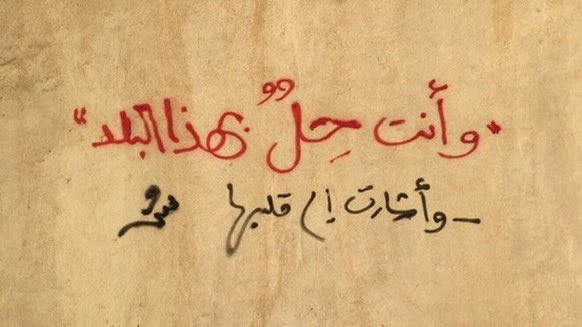 "وأنت حِلٌّ بهذا البلد"
- وأشارت إلى قلبها